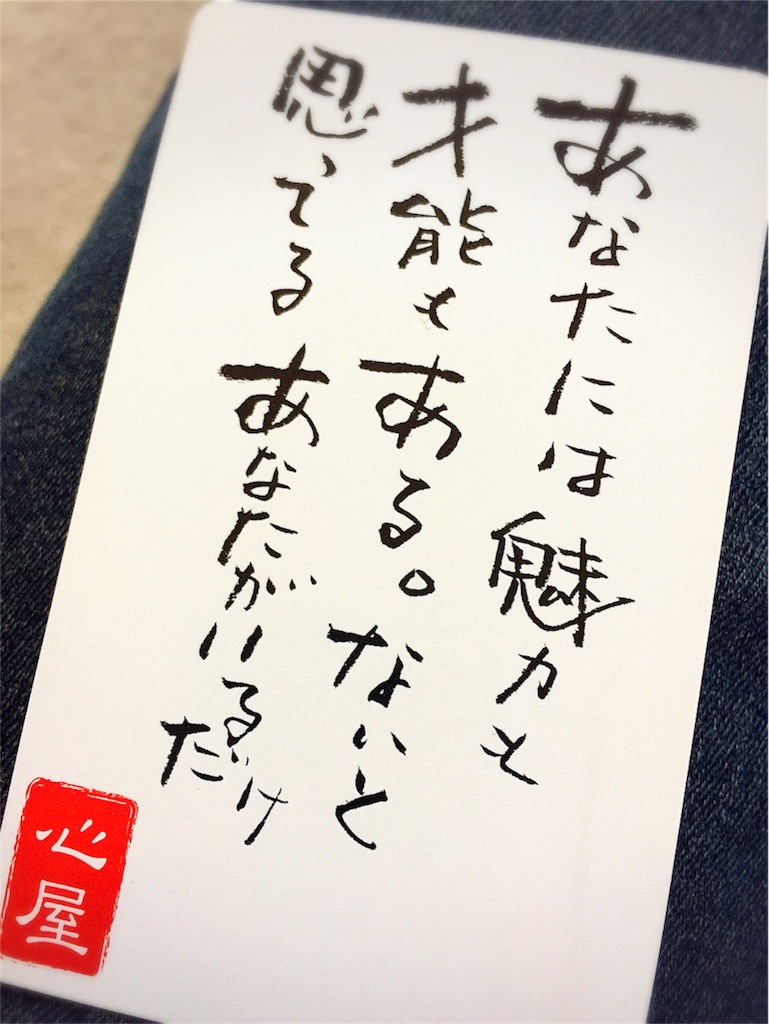 あなたには魅力も
才能もある。ないと
思ってるあなたがいるだけ
心屋